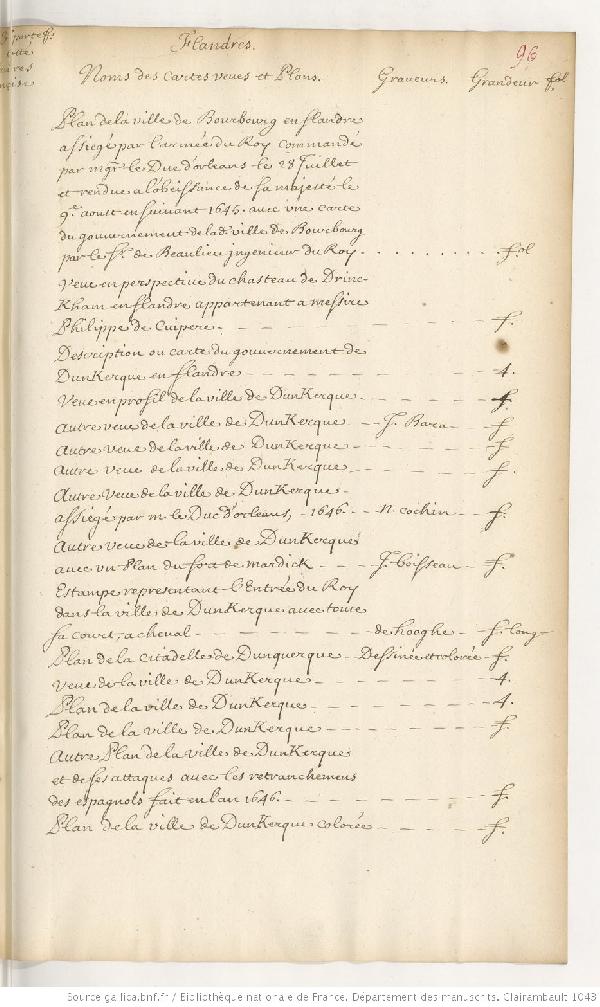 Flandres.
96
Noms des cartes veues et Plans. Graveurs. Grandeur
Plan de la ville de Bourbourg en flandre
assiegé par l'armée du Roy commandé
par mgr. le Duc d'orleans le 28 Juillet
et rendue a l'obeissance de sa majesté le
9e. aoust ensuivant 1645. avec une carte
du gouvernement de lad. ville de Bourbourg
par le Sr. de Beaulieu ingenieur du Roy . . . . . . . . . fol
Veue en perspective du chasteau de Drinc-
Kham en flandre appartenant a messire
Philippe de Cuipere - - - - - - - f.
Description ou carte du gouvernement de
DunKerque en flandre - - - - - - 4.
Veue en profil de la ville de DunKerque - - - - f.
Autre veue de la ville de DunKerque - - J. Bara - - f
Autre veue de la ville de DunKerque - - - - - f
Autre veue de la ville de DunKerque - - - - - f.
Autre Veue de la ville de DunKerque -
assiegé par m. le Duc d'orleans, - 1646 - - n. cochin - - f.
Autre Veue de la ville de DunKerque
avec un Plan du fort de mardick - - J. boisseau - - f.
Estampe representant l'Entrée du Roy
dans la ville de DunKerque avec toute
sa court, a cheval - - - - - de hooghe - - f. long
Plan de la citadelle de Dunquerque - - Dessinée et colorée - f.
Veue de la ville de DunKerque - - - - - 4.
Plan de la ville de DunKerque - - - - - 4.
Plan de la ville de DunKerque - - - - - f.
Autre Plan de la ville de DunKerque
et de ses attaques avec les retranchemens
des espagnols fait en l'an 1646 - - - - - f.
Plan de la ville de DunKerque colorée - - - - f.
Source gallica.bnf.fr / Bibliothèque nationale de France. Département des manuscrits. Clairambault 1043